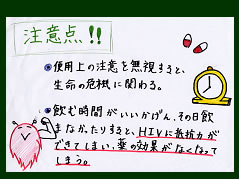 注意点!!
使用上の注意を無視すると、
生命の危機に関わる。
飲む時間がいいかげん、その日飲
まなかったりすると、HIVに抵抗力が
できてしまい、薬の効果がなくなって
しまう。